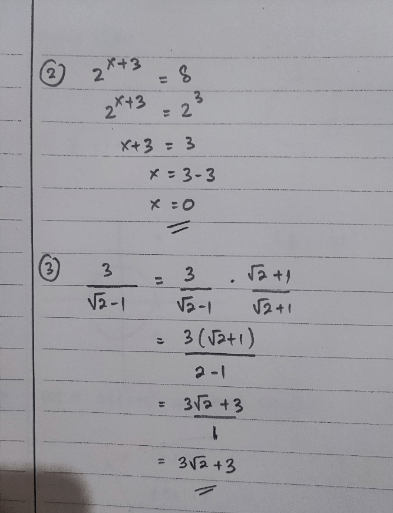 ② 2^(x+3) = 8
2^(x+3) = 2^3
x+3 = 3
x = 3-3
x = 0
③ 3/(√2-1) = 3/(√2-1) . (√2+1)/(√2+1)
= 3(√2+1)/(2-1)
= (3√2+3)/1
= 3√2+3